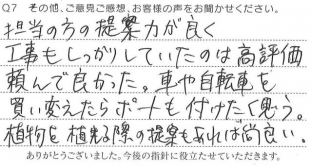 Q7 その他、ご意見ご感想、お客様の声をお聞かせください。
担当の方の提案力が良く
工事もしっかりしていたのは高評価
頼んで良かった。車や自転車を
買い変えたらポートも付けたく思う。
植物を植える際の提案もあれば尚良い。
ありがとうございました。今後の指針に役立たせていただきます。